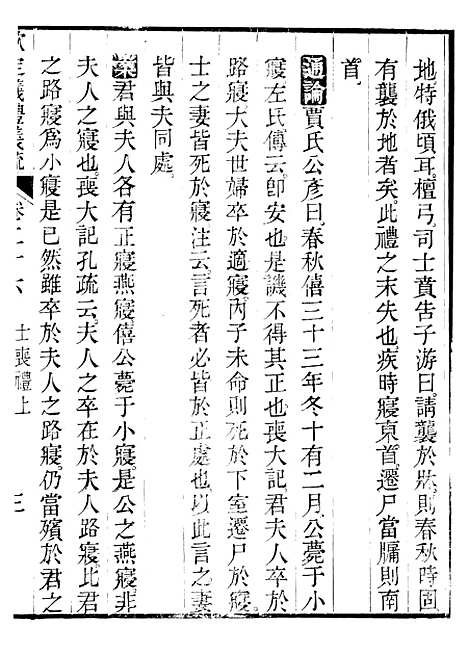 地特俄頃耳。檀弓。司士賁告子游曰。請襲於牀。則春秋時固
有襲於地者矣。此禮之末失也。疾時寢東首。遷尸當牖則南
首。
通論賈氏公彥曰。春秋僖三十三年冬十有二月。公薨于小
寢。左氏傳云。卽安也。是譏不得其正也。喪大記。君夫人卒於
路寢。大夫世婦卒於適寢。內子未命則死於下室。遷尸於寢。
士之妻皆死於寢。注云。言死者必皆於正處也。以此言之。妻
皆與夫同處。
案君與夫人各有正寢燕寢。僖公薨于小寢。是公之燕寢。非
夫人之寢也。喪大記孔疏云。夫人之卒在於夫人路寢。比君
之路寢爲小寢。是已。然雖卒於夫人之路寢。仍當殯於君之
欽定儀禮義疏 卷二十六 士喪禮上 三